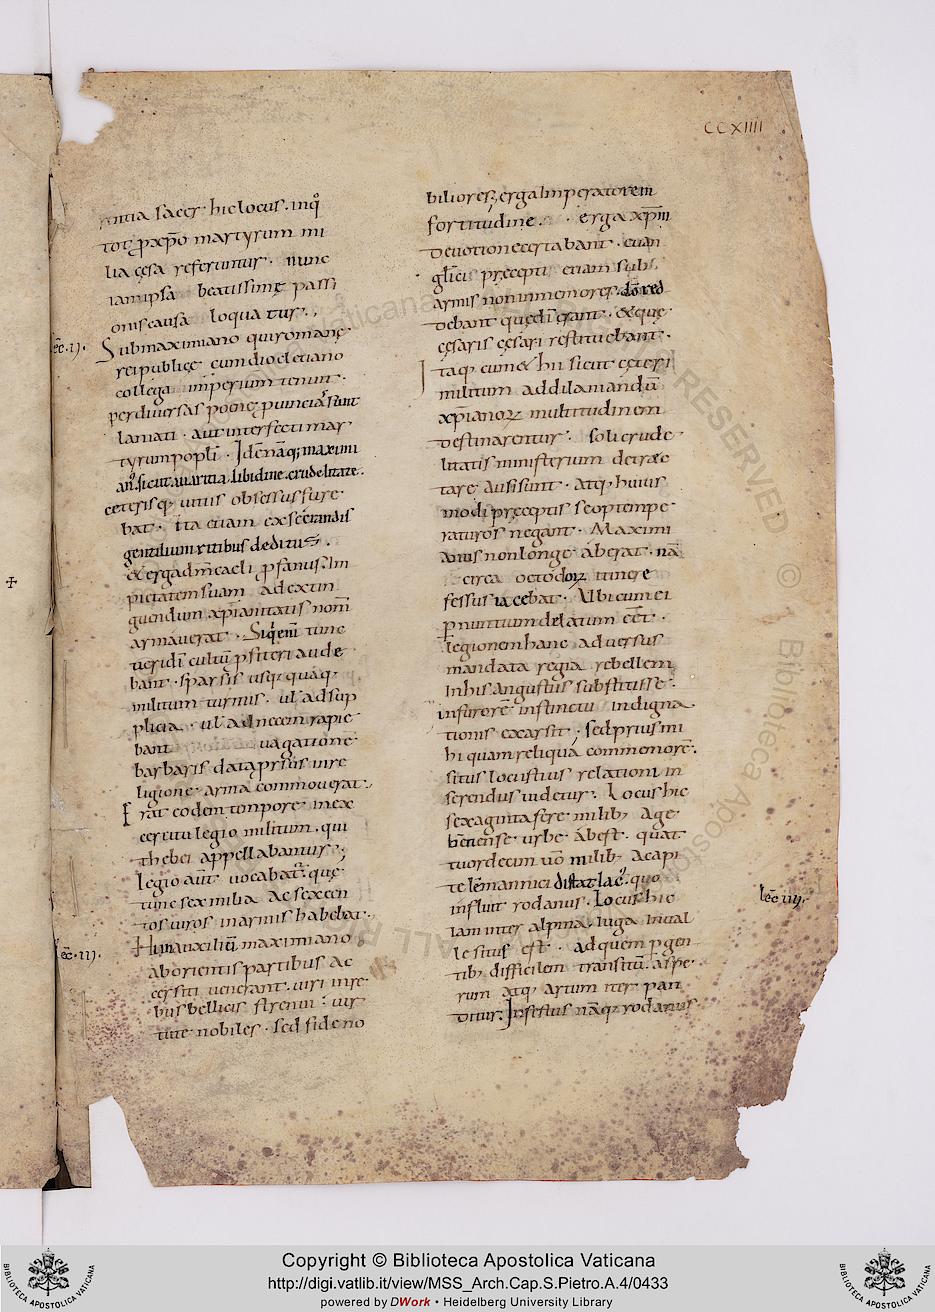 CCXIIII
rentia sacer hic locus. inq̊
tot p xp̄o martyrum mi
lia cęsa referuntur. nunc
iam ipsa beatissimę passi
onis causa loquatur.,
lec̄.ıȷ.
Submaximiano qui romanę
rei publicę cum diocletiano
collega imperium tenuit.
per diuersas poene puincias sunt
laniati. aut interfecti mar
tyrum popl̄i. Idēnāq; maximi
an'. sicut auaritia. libidine. crudelitate.
ceterisq; uitiis obsessus fure
bat. ita etiam exsecrandis
gentilium ritibus deditus.
& erga dm̄ caeli pfanus. Im
pietatem suam ad extin
guendum xp̄ianitatis nom̄
armauerat. Siq̇enī tunc
ueri dī cultū pfiteri aude
bant. sparsis usq; quaq;
militum turmis. ul' ad sup
plicia. ul' ad necem rapie
bant uagatione
barbaris data prsus in re
ligione arma commouerat.
Erat eodem tempore in ex
cercitu legio militum. qui
thebei appellabantur.
Legio aūt uocabat̄. quę
tunc sex milia ac sexcen
tos uiros in armis habebat.
lec̄.ııȷ.
Hi in auxiliū maximiano
ab orientis partibus ac
cersiti uenerant. uiri in re
bus bellicis strenui: uir
tute nobiles. sed fide no
biliores, erga imperatorem
fortitudine. erga xp̄m
deuotione certabant. euan
gl̄icis pręcepti etiam sub
armis non inmemores. dō red
debant quę dī erant. & quę
cęsaris cęsari restituebant.
Itaq; cum & hii sicut cęteri
militum addilaniandū
xp̄ianoꝝ multitudinem
destinarentur. soli crude
litatis ministerium detrec
tare ausi sunt. atq; huius
modi pręceptis se optempe
raturos negant. Maximi
anus non longe aberat. nā
circa octodoꝝ itinere
fessus iacebat. Vbi cum ei
p nuntium delatum eēt.
legionem hanc aduersus
mandata regia rebellem
in his angustiis substitisse.
in furore instinctu indigna
tionis exarsit. sed prius mi
hi quam reliqua commemorē.
situs loci istius relationi in
serendus uidetur. Locus hic
sexaginta fere milib; a ge
benense urbe abest. quat
tuordecim uō milib; a capi
te lemanni ci distat lac'. quo
influit rodanus. Locus hic
lec̄ ıııȷ.
iam inter alpina iuga in ual
le situs est. ad quem p gen
tib; difficilem transitū. aspe
rum atq; artum iter pan
ditur. Infestus nāq; rodanus
Copyright © Biblioteca Apostolica Vaticana
http://digi.vatlib.it/view/MSS_Arch.Cap.S.Pietro.A.4/0433
powered by DWork • Heidelberg University Library